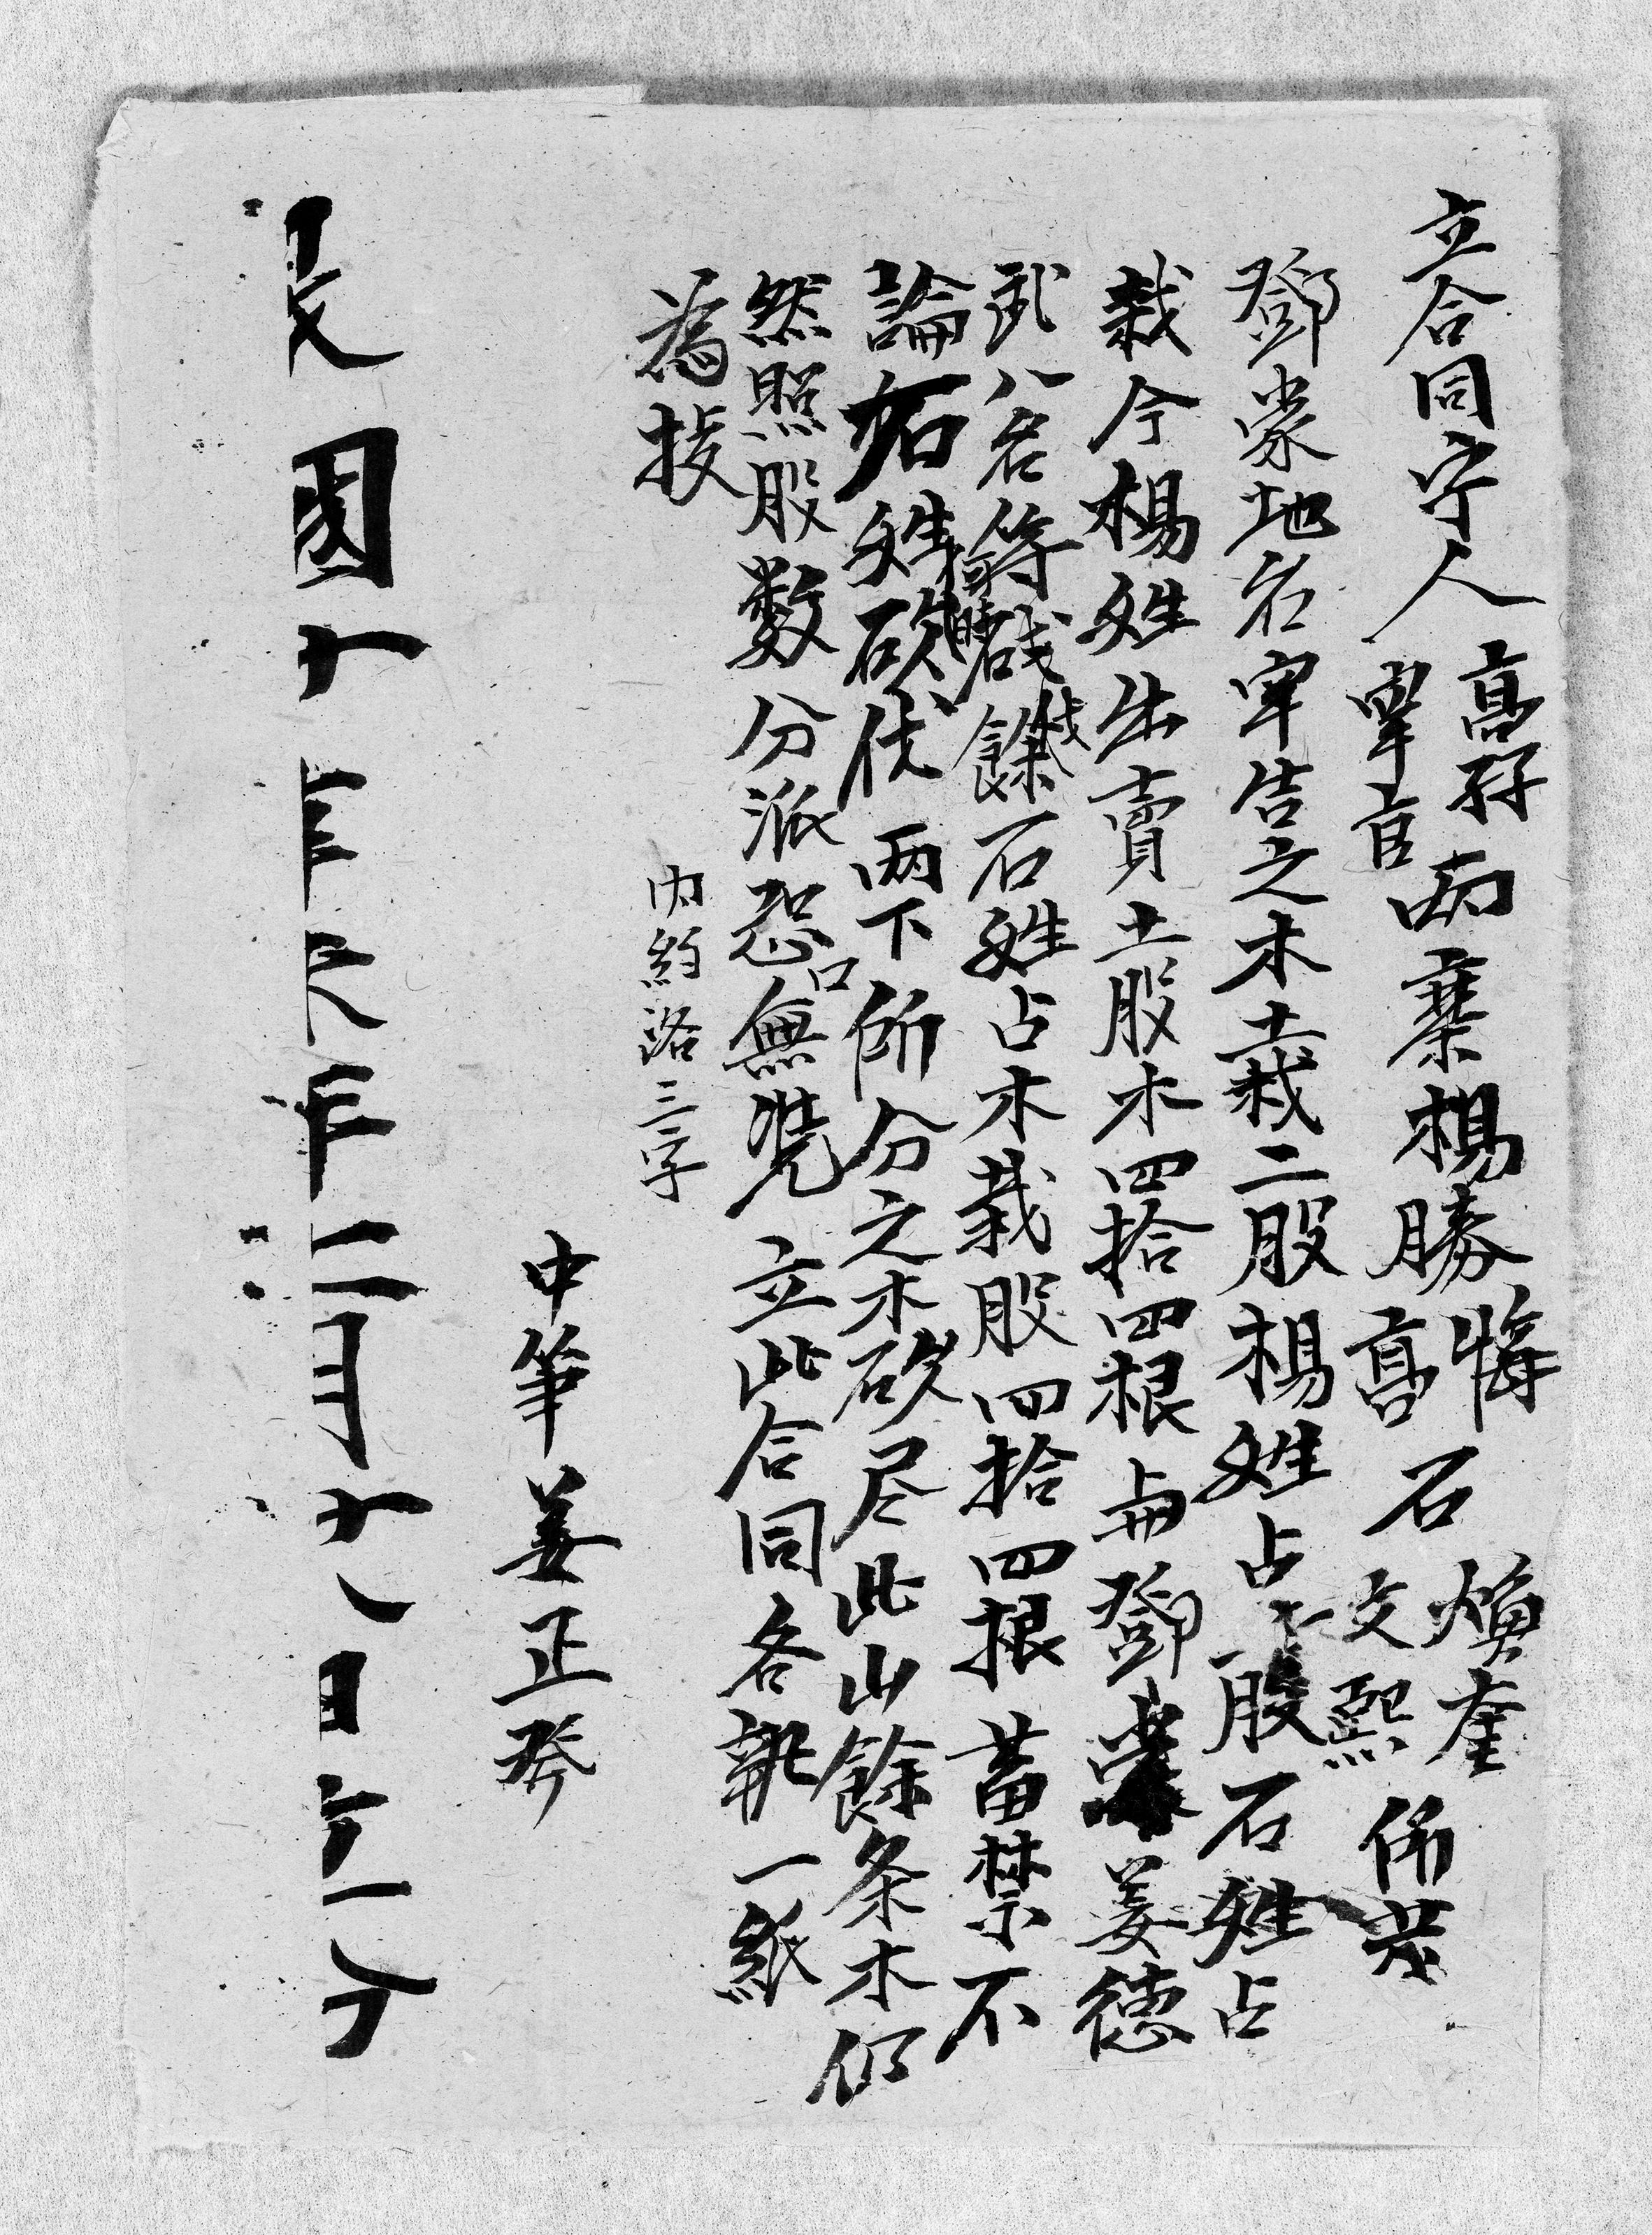 立合同字人高孖𦊅官兩寨楊勝𤙯高石煥奎文熙所爲
鄧蒙地名牢吉之木土栽二股楊姓占一股石姓占
栽今楊姓出賣土股木四拾四根與鄧蒙姜德
武八名等砍伐餘石姓占木栽股四拾四根蓄禁不
論石姓何時砍伐兩下所分之木砍尽此山餘条木仍
然照股数分派恐口無凴立此合同各執一紙
為據
内約洛三字
中筆姜正癸
民國十 年二月十八日立